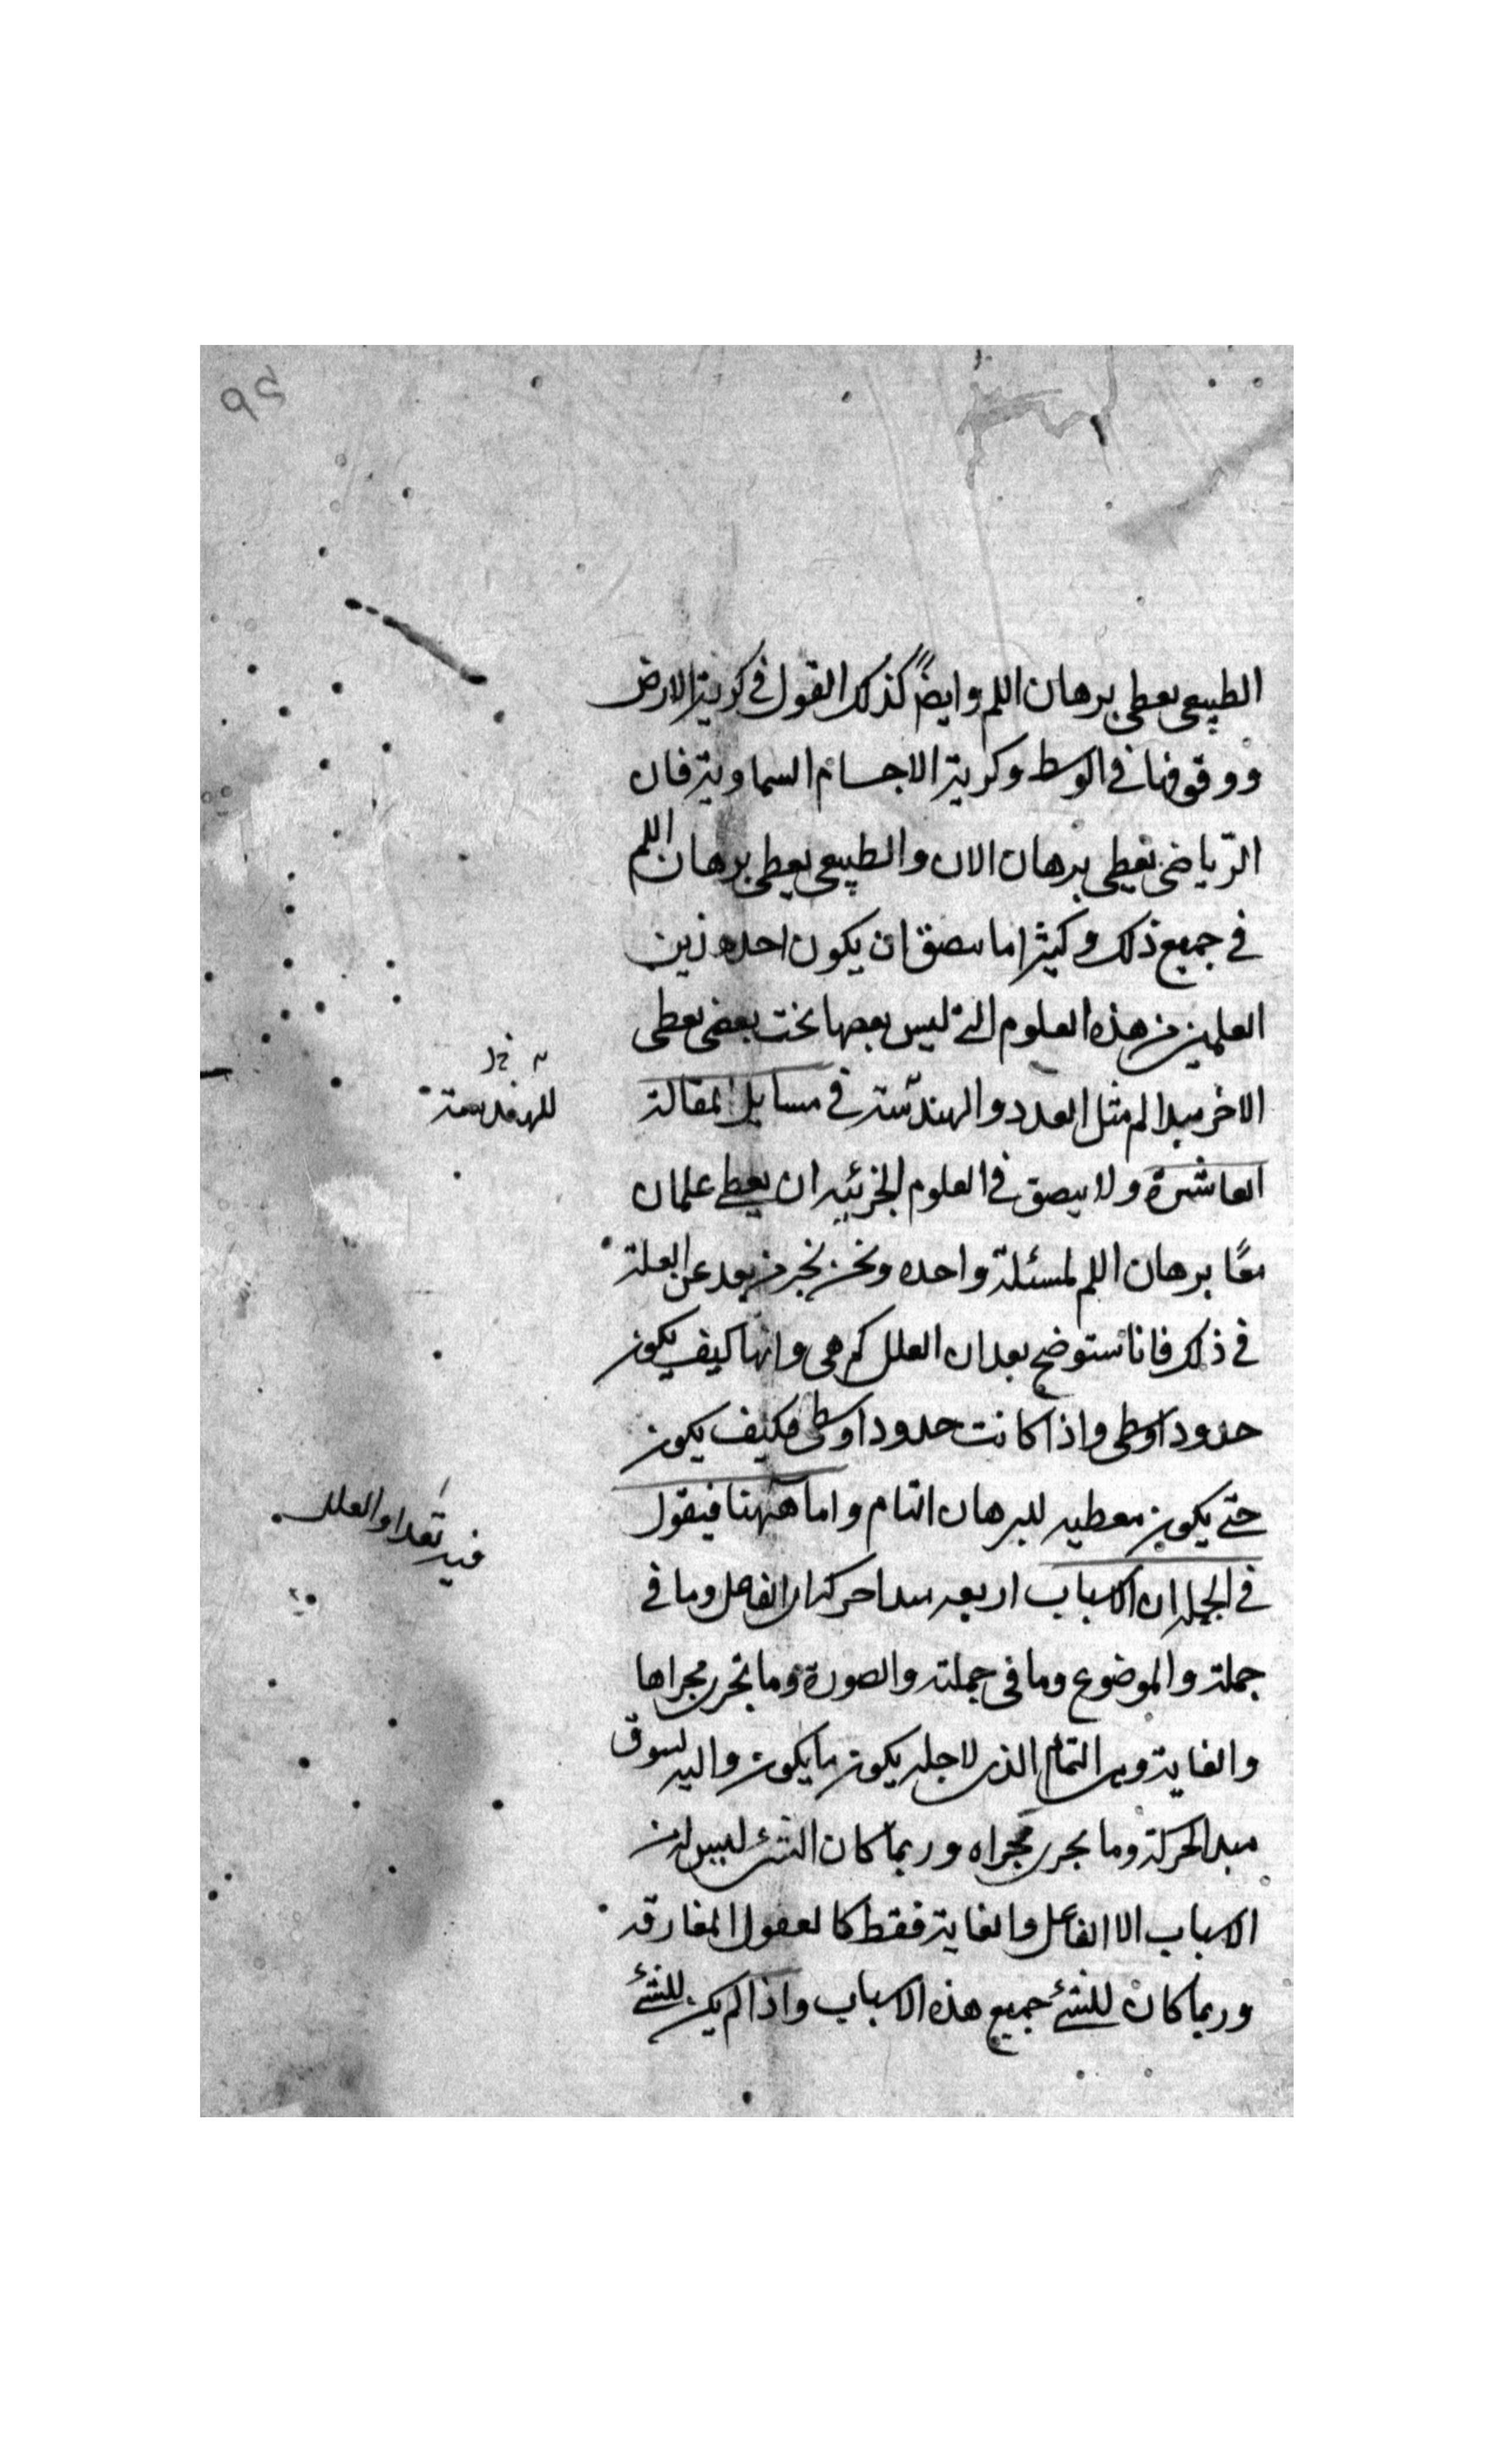 ٩٤
الطبيعى يعطى برهان اللم وايضاً كذلك القول فى كرية الارض
ووقوفها فى الوسط وكرية الاجسام السماوية فان
الرّياضى يعطى برهان الان والطبيعى يعطى برهان اللم
فى جميع ذلك وكثيرا ما يتفق ان يكون احد هذين
العلمين من هذه العلوم التى ليس بعضها تحت بعض يعطى
الاخر مبدا لم مثل العدد والهندسة فى مسايل المقالة
للهندسة
العاشرة ولا يتفق فى العلوم الجزئيه ان يعطى علمان
معًا برهان اللم لمسئلة واحده ونحن نخبر من بعد عن العلة
فى ذلك فانا سنوضح بعد ان العلل كم هى وانها كيف يكون
حدودا وسطى واذا كانت حدودا وسطى فكيف يكون
حتى يكون معطيه للبرهان التام واما ههنا فيقول
فيه تعداد العلل
فى الجملة ان الاسباب اربعه مبدا حركه اى الفاعل وما فى
جملته والموضوع وما فى جملته والصورة وما تجرى مجراها
والغاية وهى التمام الذى لاجله يكون ما يكون واليه يسوق
مبدا الحركة وما يجرى مجراه وربما كان الشئ ليس له من
الاسباب الا الفاعل والغاية فقط كالعقول المفارقه
وربما كان للشئ جميع هذه الاسباب واذا لم يكن للشئ